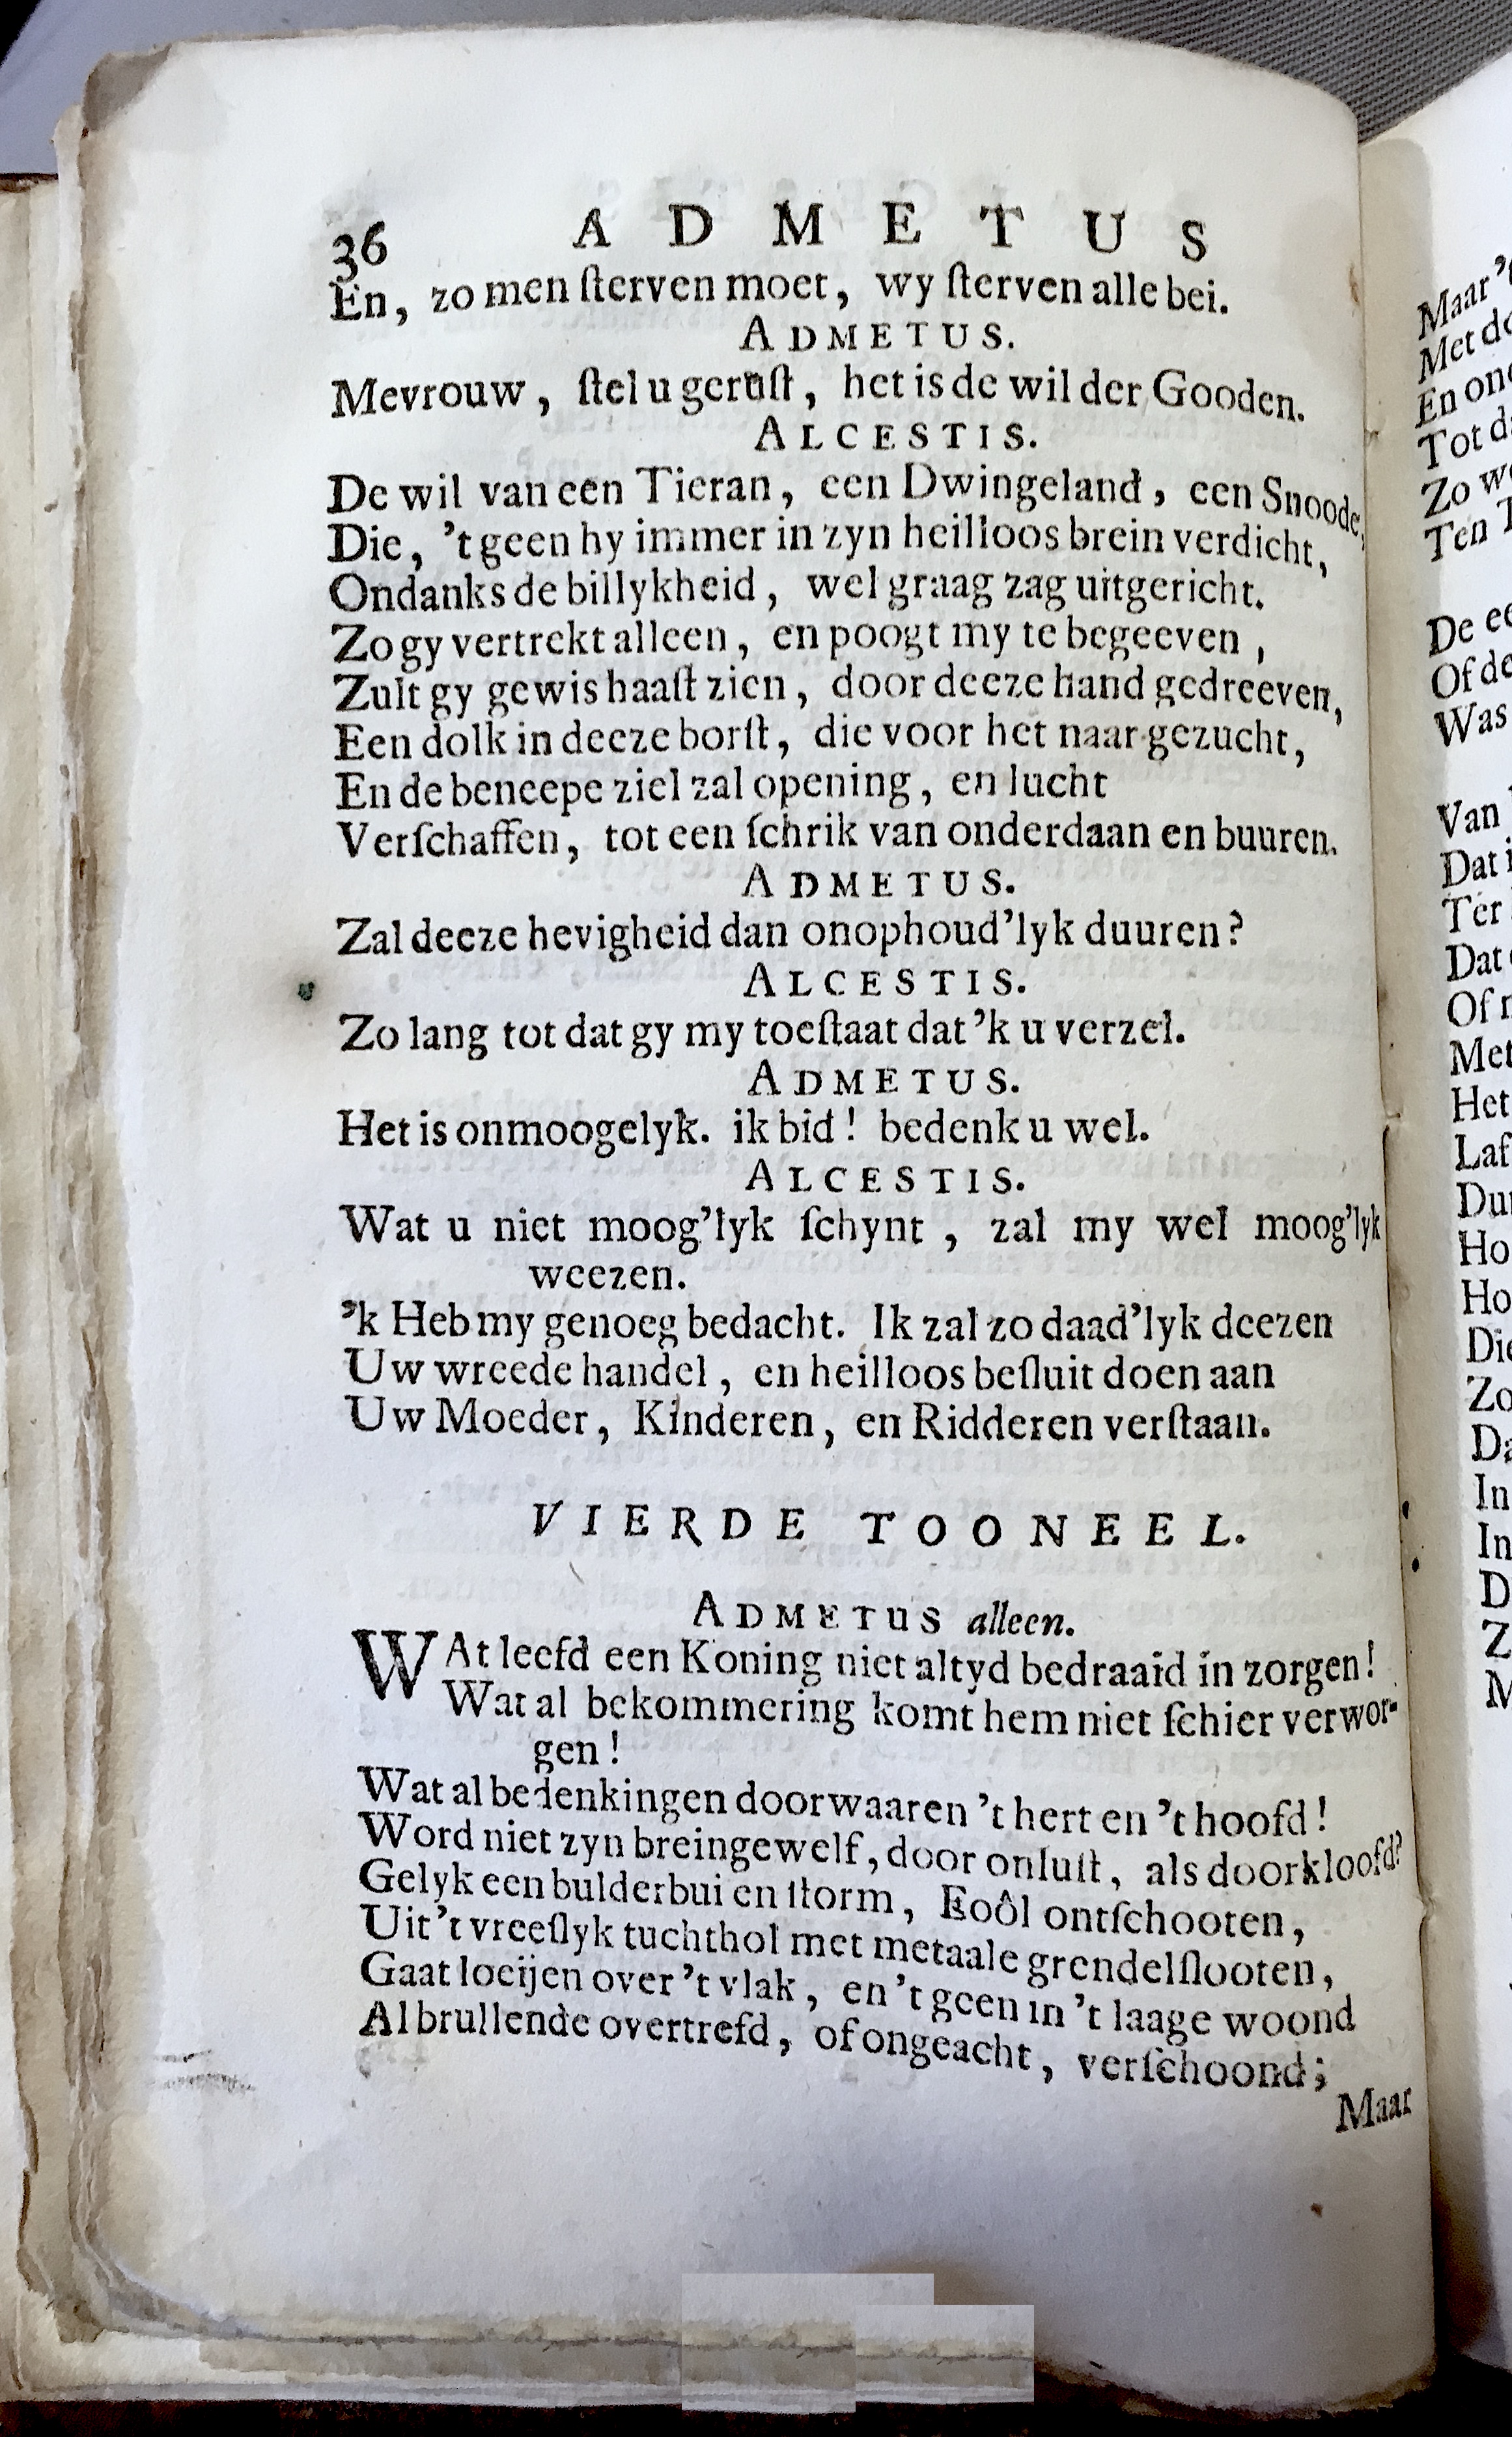 36 ADMETUS
En, zo men ſterven moet, wy ſterven alle bei.
ADMETUS.
Mevrouw, ſtel u geruſt, het is de wil der Gooden.
ALCESTIS.
De wil van een Tieran, een Dwingeland, een Snoode,
Die, 't geen hy immer in zyn heilloos brein verdicht,
Ondanks de billykheid, wel graag zag uitgericht.
Zo gy vertrekt alleen, en poogt my te begeeven,
Zult gy gewis haaſt zien, door deeze hand gedreeven,
Een dolk in deeze borſt, die voor het naar gezucht,
En de beneepe ziel zal opening, en lucht
Verſchaffen, tot een ſchrik van onderdaan en buuren.
ADMETUS.
Zal deeze hevigheid dan onophoud'lyk duuren?
ALCESTIS.
Zo lang tot dat gy my toeſtaat dat 'k u verzel.
ADMETUS.
Het is onmoogelyk. ik bid! bedenk u wel.
ALCESTIS.
Wat u niet moog'lyk ſchynt, zal my wel moog'lyk
weezen.
'k Heb my genoeg bedacht. Ik zal zo daad'lyk deezen
Uw wreede handel, en heilloos beſluit doen aan
Uw Moeder, Kinderen, en Ridderen verſtaan.
VIERDE TOONEEL.
ADMETUS alleen.
WAt leefd een Koning niet altyd bedraaid in zorgen!
Wat al bekommering komt hem niet ſchier verwor-
gen!
Wat al bedenkingen doorwaaren 't hert en 't hoofd!
Word niet zyn breingewelf, door onluſt, als doorkloofd?
Gelyk een bulderbui en ſtorm, Eoôl ontſchooten,
Uit 't vreeſlyk tuchthol met metaale grendelſlooten,
Gaat loeijen over 't vlak, en 't geen in 't laage woond
Al brullende overtrefd, of ongeacht, verſchoond;
Maar
Maar
Met
En
Tot
Zo
Ten
De
Of
Was
Van
Dat
Ter
Dat
Of
Met
Het
In
In